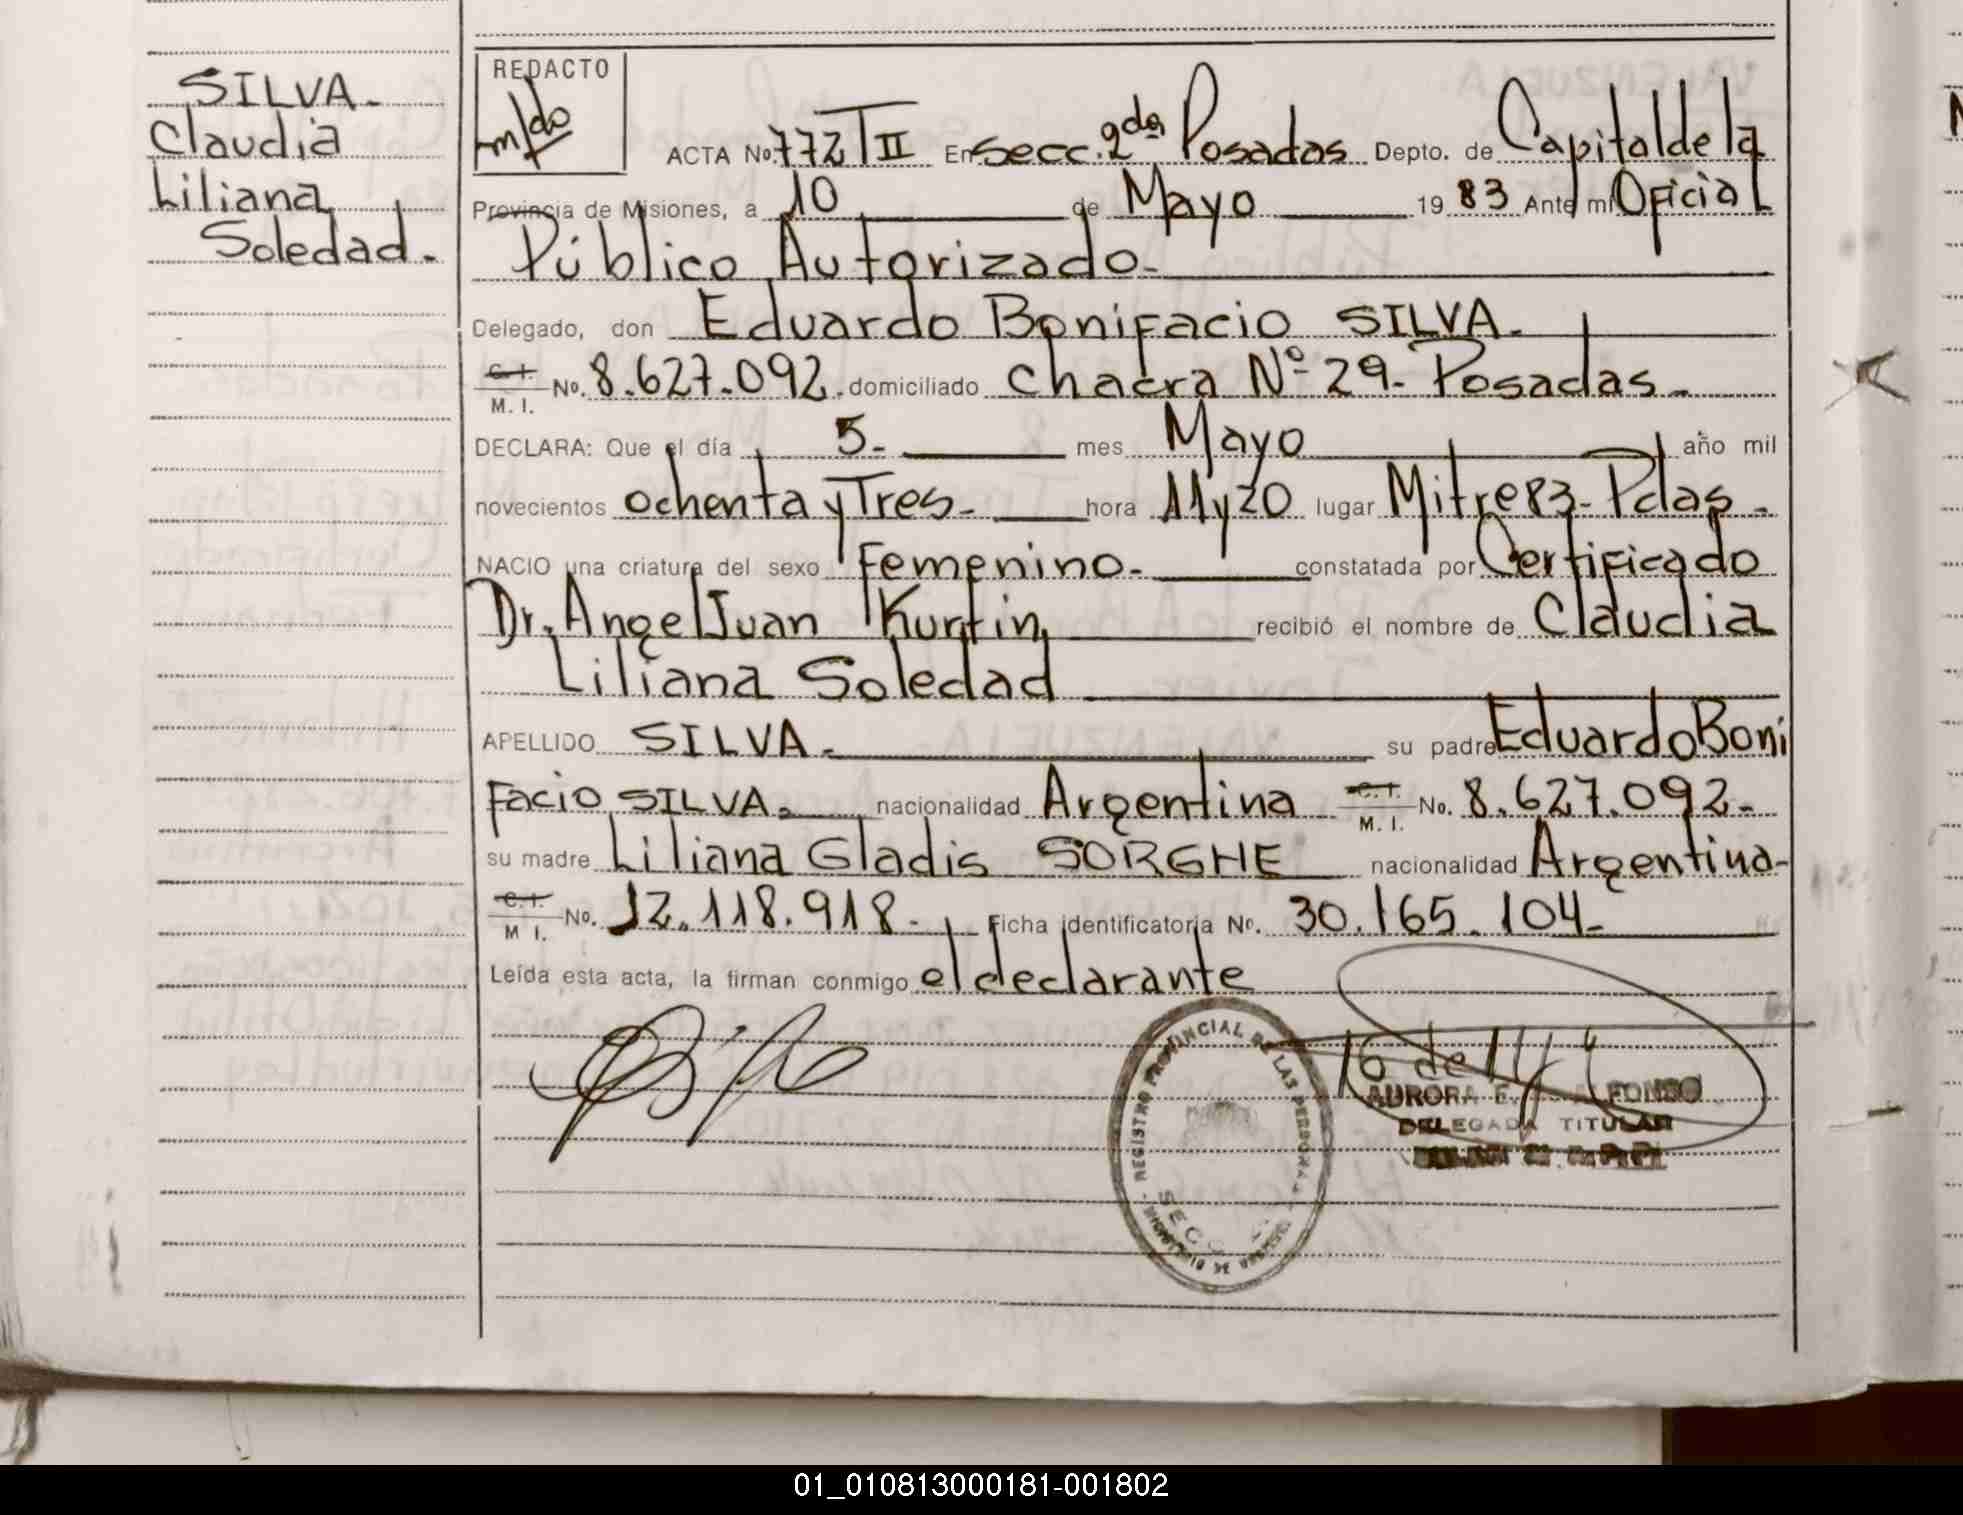 SILVA.
Claudia
Liliana
Soledad.
REDACTO
ACTA No. 772 T II En Secc. 2da Posadas Depto. de Capital de la
Provincia de Misiones, a 10 de Mayo 1983 Ante mi Oficial
Público Autorizado-
Delegado, don Eduardo Bonifacio SILVA.
C. I.
M. I. No. 8.627.092. domiciliado chacra Nº 29- Posadas-
DECLARA: Que el día 5- mes Mayo año mil
novecientos ochenta y Tres- hora 11 y 20 lugar Mitre 83- Pdas-
NACIO una criatura del sexo Femenino- constatada por Certificado
Dr. Angel Juan Kurtin recibió el nombre de Claudia
Liliana Soledad
APELLIDO SILVA- su padre Eduardo Boni
Facio SILVA- nacionalidad Argentina C. I. M. I. No. 8.627.092-
su madre Liliana Gladis SORGHE nacionalidad Argentina-
C. I.
M I. No. 12.118.918- Ficha identificatoria Nº. 30.165.104-
Leída esta acta, la firman conmigo el declarante
REGISTRO PROVINCIAL DE LAS PERSONAS
SECC
AURORA E. ALFONSO
DELEGADA TITULAR
01_010813000181-001802